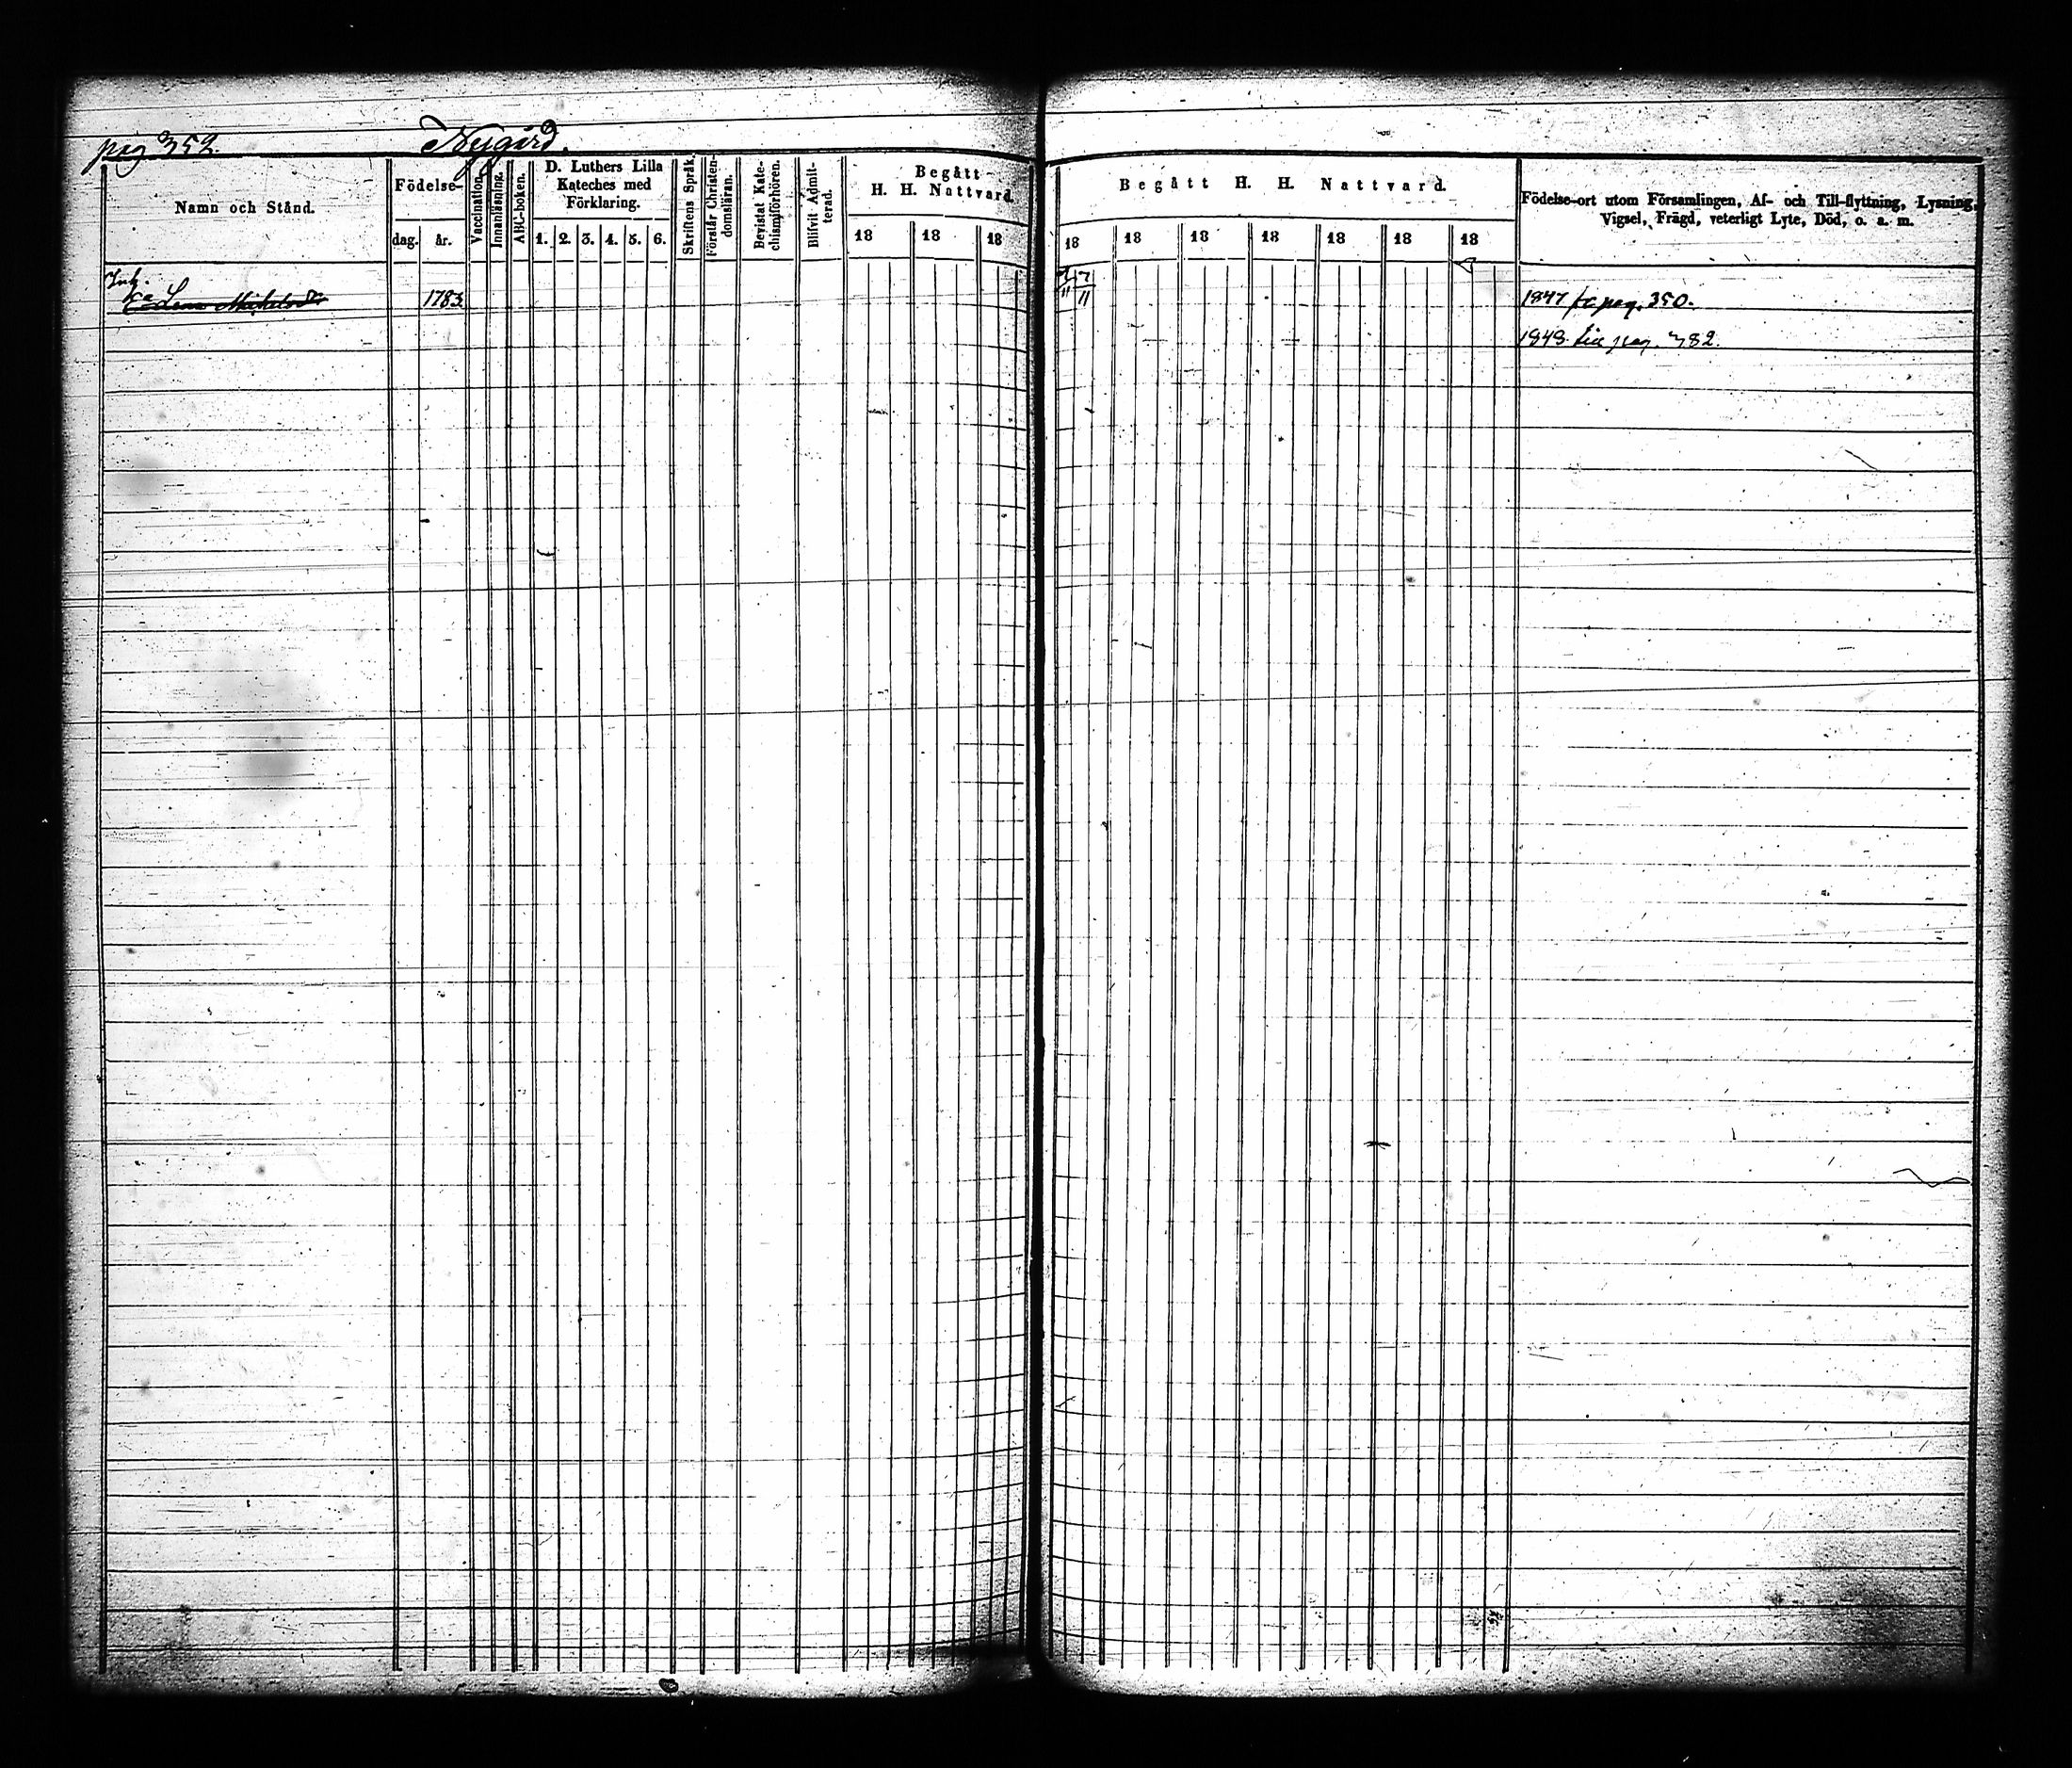 pag 352.
Nygård.
Namn och Stånd.
Födelse-
dag.
år.
Vaccination.
Innanläsning.
ABC-boken.
D. Luthers Lilla
Kateches med
Förklaring.
1. 2. 3. 4. 5. 6.
Skriftens Språk.
Förstår Christen-
domsläran.
Bevistat Kate-
chismiförhören.
Blifvit Admit-
terad.
Begått
H. H. Nattvard.
18 18 18
Begått H. H. Nattvard.
18 18 18 18 18 18 18
Födelse-ort utom Församlingen, Af- och Till-flyttning, Lysning,
Vigsel, Frägd, veterligt Lyte, Död, o. a. m.
Inh.
Lena Michelsdr 1783 1847 fr pag. 350.
1848 till pag. 382.